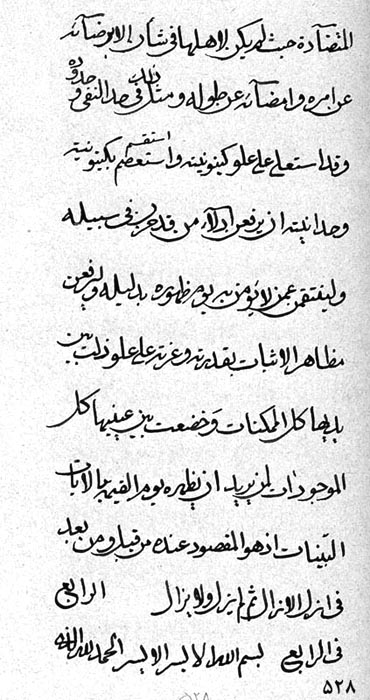 المتضآدة حيث لم يكن لاهلها فى شأن الا برضآئه
عن امره و امضآئه عن طوله و مثل ذلك فى حد النفى و حدوده
و قد استعلى على علو كينونيته و استعظم بكينونية
وحدانيته ان يرفعن ادلآء من قد عرف فى سبيله
و لينتقمن عمن لا يؤمنن به يوم ظهوره بدليله و ليرفعن
مظاهر الاثبات بقدرته و عزته على علو ذلت بين
يديها كل الممكنات و خضعت بين عينيها كل
الموجودات لمن يريد ان يظهره يوم القيمة بالآيات
البينات اذ هو المقصود عنده من قبل و من بعد
فى ازل الازال ثم لم يزل و لا يزال الرابع
فى الرابع بسم الله الايسر الايسر الحمد لله الذى
۵۲۸